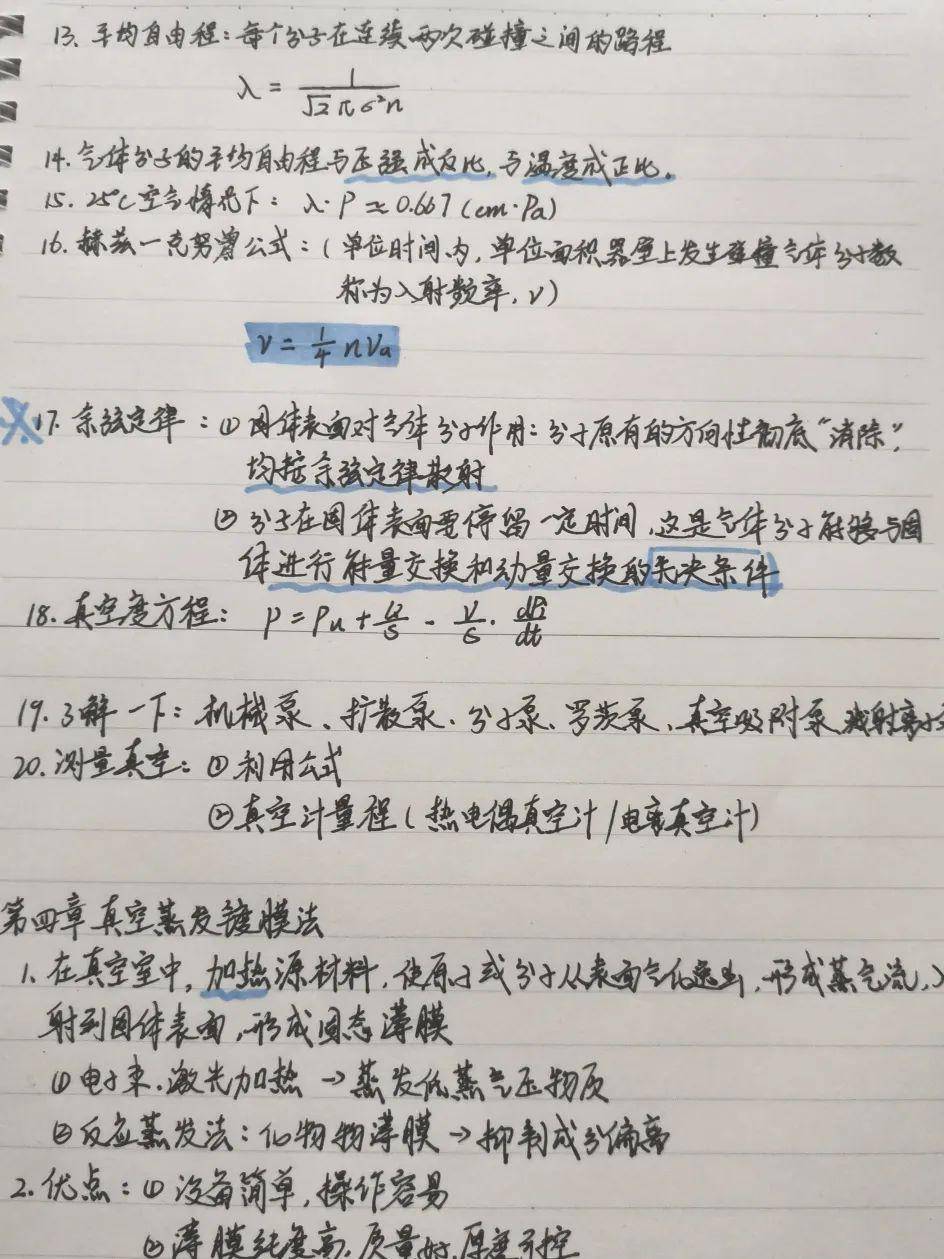 13. 平均自由程：每个分子在连续两次碰撞之间的路程
λ = 1 / √2 πσ²n
14. 气体分子的平均自由程与压强成反比，与温度成正比。
15. 25℃空气情况下： λ·P ≈ 0.667 (cm·Pa)
16. 赫兹一克努曾公式：（单位时间内，单位面积器壁上发生碰撞气体分子数
称为入射频率，ν）
ν = 1/4 nVa
17. 余弦定律：① 固体表面对气体分子作用：分子原有的方向性彻底“消除”，
均按余弦定律散射
② 分子在固体表面要停留一定时间，这是气体分子能够与固
体进行能量交换和动量交换的先决条件
18. 真空度方程： P = Pu + Q/S - V/S · dPi/dt
19. 了解一下：机械泵、扩散泵、分子泵、罗茨泵、真空吸附泵、溅射离子
20. 测量真空：① 利用公式
② 真空计量程（热电偶真空计/电离真空计）
第四章 真空蒸发镀膜法
1. 在真空室中，加热源材料，使原子或分子从表面气化逸出，形成蒸气流，入
射到固体表面，形成固态薄膜
① 电子束、激光加热 → 蒸发低蒸气压物质
② 反应蒸发法：化物物薄膜 → 抑制成分偏离
2. 优点：① 设备简单，操作容易
② 薄膜纯度高，质量好，厚度可控